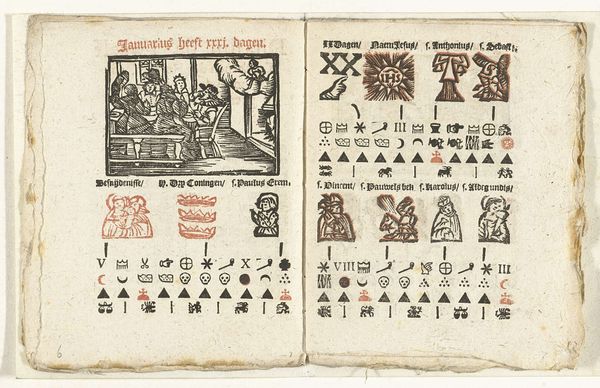 Januarius heeft xxxj. dagen.
Besnijdenisse/ H. Dry Coningen/ s. Paulus Erem.
V X
6
XX Dagen/ Naem Jesus/ s. Anthonius/ s. Sebast
XX IHS
III
s. Vincent/ s. Pauwels bek s. Karolus/ s. Aldegundis/
VIII III